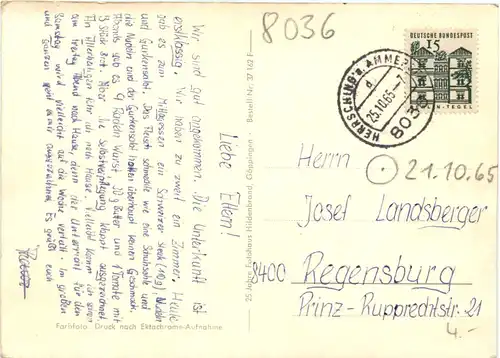 8036
Liebe Eltern!
Wir sind gut angekommen. Die Unterkunft ist
erstklassig. Wir haben zu zweit ein Zimmer. Heute
gab es zum Mittagessen ein Schweizer steak (10g) Nudeln
und Gurkensalat. Das Fleisch schmeckte wie eine Schuhsohle und
die Nudeln und der Gurkensalat hatten überhaupt keinen Geschmack.
Abends gab es 9 Rundeln Wurst 20 g Butter und 1 Tomate mit
3 Stück Brot. Aber die Selbstverpflegung klappt ausgezeichnet.
An Allerheiligen fahr ich nach Hause. Vielleicht komm ich schon
am Freitag Abend nach Hause, denn der Unterricht für den
Samstag wird vielleicht auf die Woche verteilt. Im großen
und ganzen geht es mir ausgezeichnet. Es grüßt euch
Farbfoto. Druck nach Ektachrome-Aufnahme
55 Jahre Fotohaus Hildenbrand, Göppingen - Bestell Nr.
DEUTSCHE BUNDESPOST
15
TEGEL
HERRSCHING a. AMMERSEE
d
25.10.65
8036
Herrn
21.10.65
Josef Landsberger
8400 Regensburg
Prinz-Rupprechtstr. 21
4.-